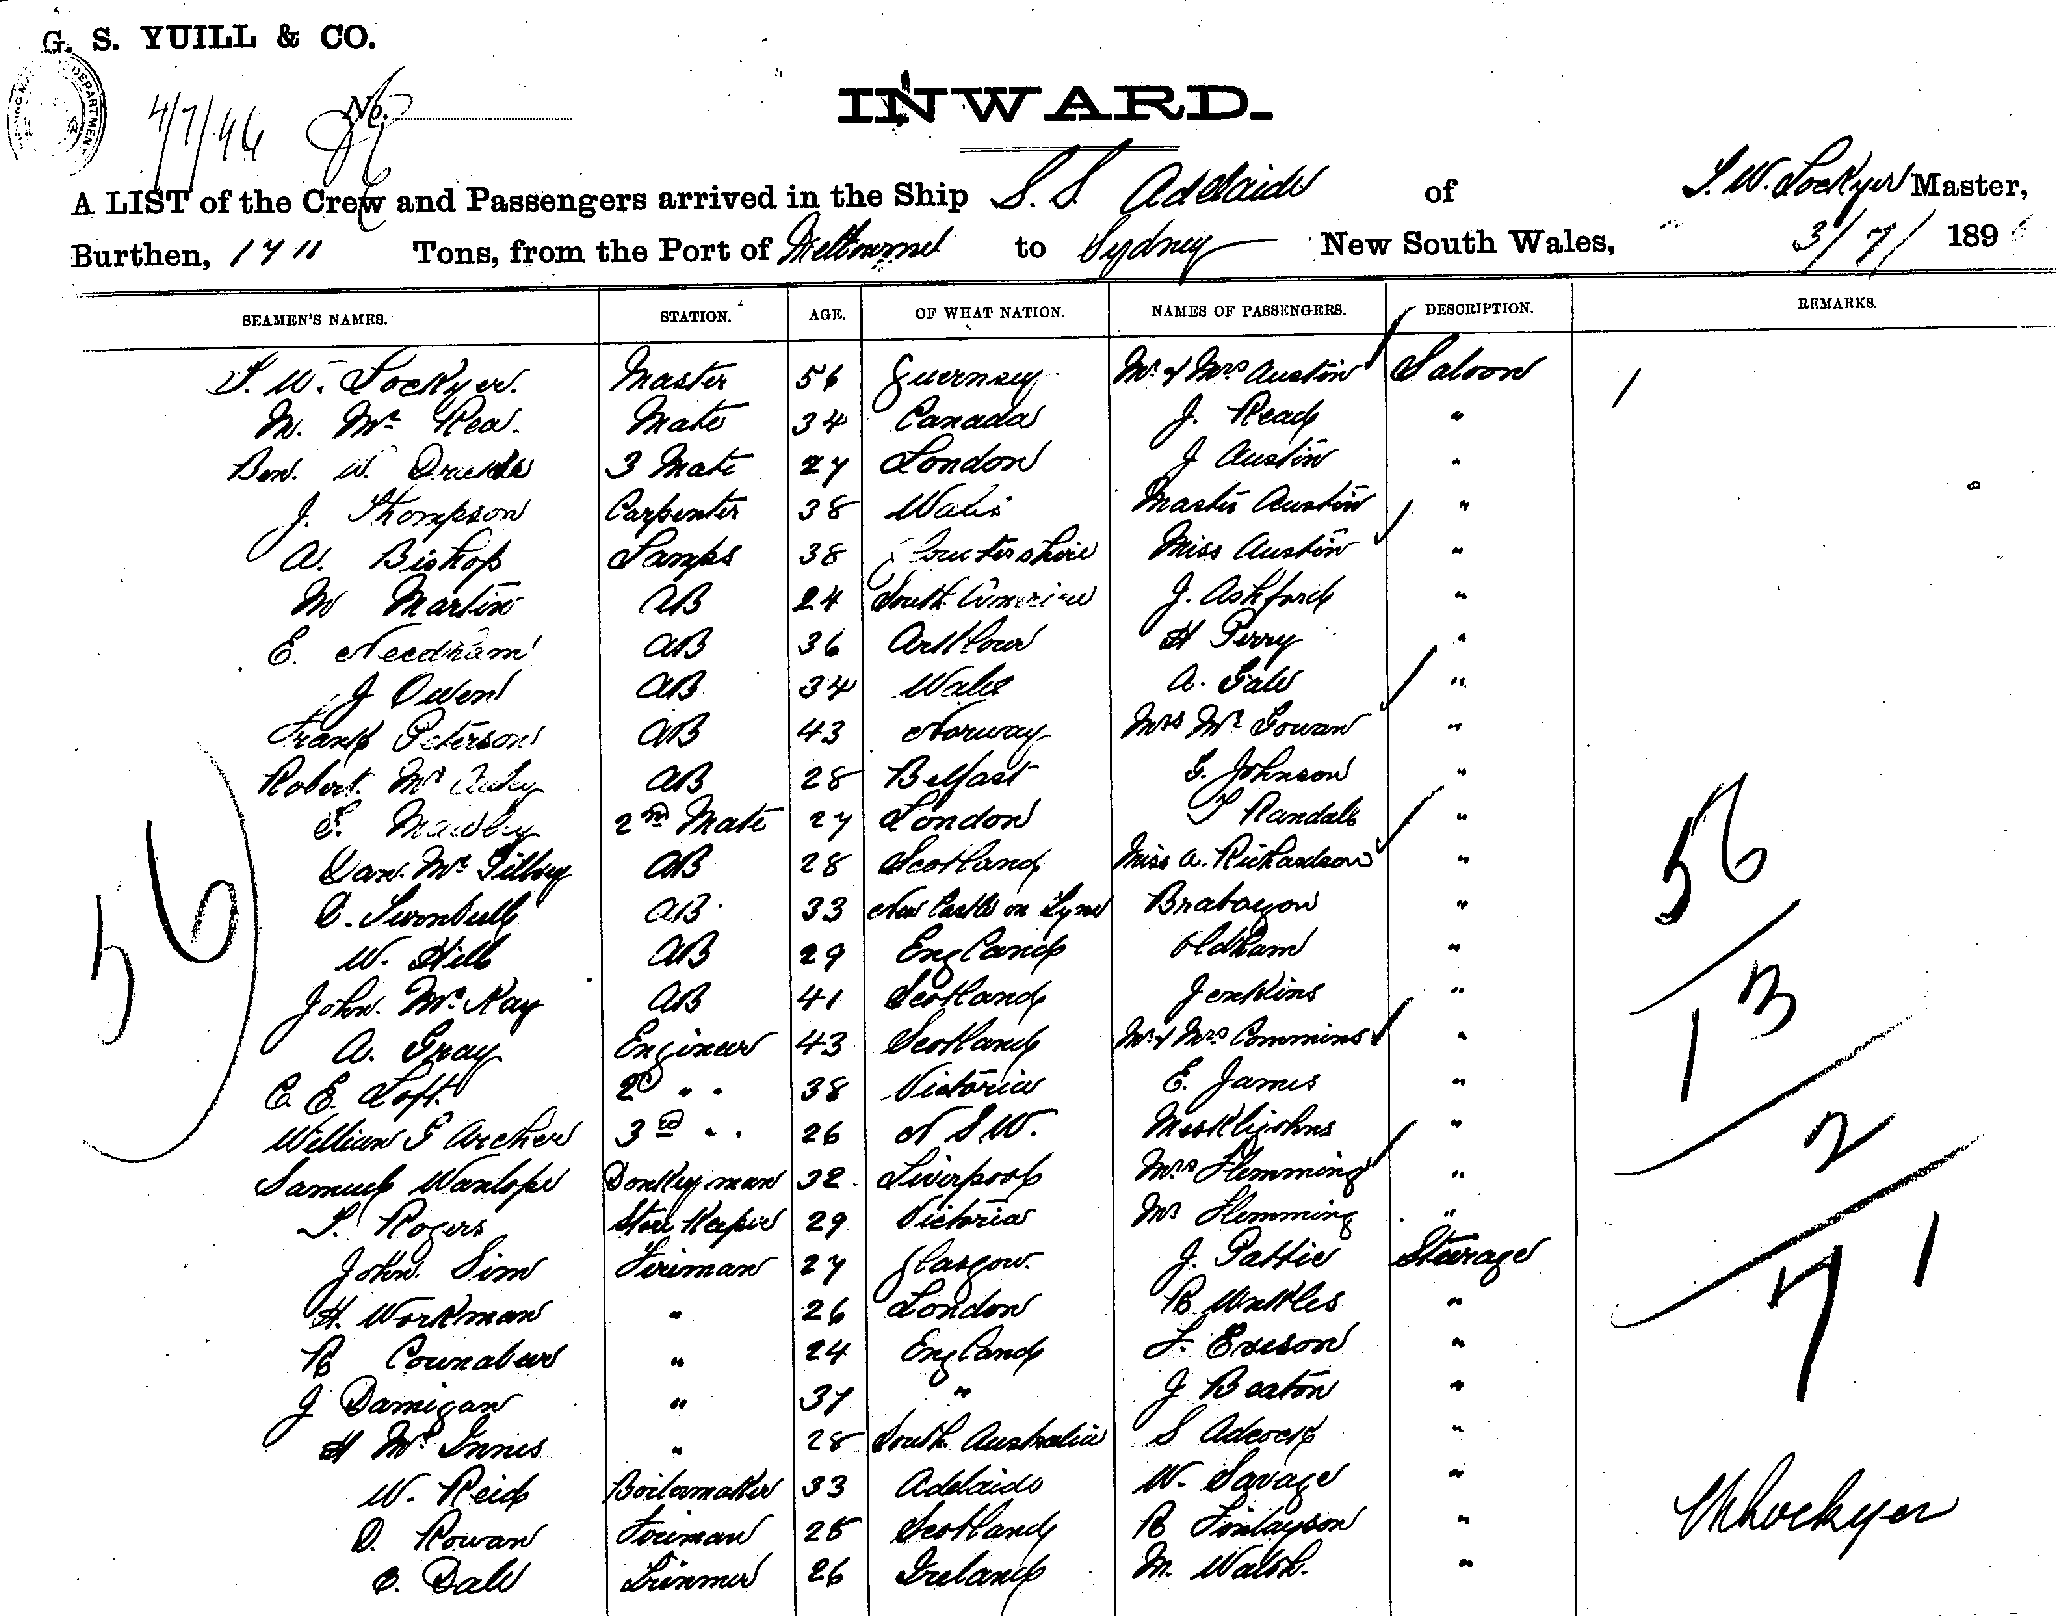 G. S. YUILL & CO.
DEPARTMENT
4/7/96 No.
INWARD.
A LIST of the Crew and Passengers arrived in the Ship S. S. Adelaide of S. W. Lockyer Master,
Burthen, 1711 Tons, from the Port of Melbourne to Sydney New South Wales, 3/7/ 189
SEAMEN'S NAMES. STATION. AGE. OF WHAT NATION. NAMES OF PASSENGERS. DESCRIPTION. REMARKS.
S. W. Lockyer. Master 56 Guernsey Mr & Mrs Austin Saloon 1
M. Mc Rea. Mate 34 Canada J. Read "
Ben. W. 3 Mate 27 London J Austin "
J. Thompson Carpenter 38 Wales Master Austin "
A. Bishop Lamps 38 Gloucestershire Miss Austin "
M Martin AB 24 South America J. Ashford "
E. Needham AB 36 Arklow H Perry "
J Owen AB 34 Wales A. Gale "
Frank Peterson AB 43 Norway Mrs Mc Gowan "
Robert Mc AB 28 Belfast G. Johnson "
S. Mawby 2nd Mate 27 London T Randall "
Dan. Mc AB 28 Scotland Miss A. Richardson "
AB 33 New Castle on Tyne Brabazon "
W. Hill AB 29 England Oldham "
John. Mc Kay AB 41 Scotland Jenkins "
A. Gray Engineer 43 Scotland Mr & Mrs Commins "
C. E. Loft. 2d " " 38 Victoria E. James "
William G Archer 3rd " " 26 N S W. "
Samuel Wanlope Donkeyman 32 Liverpool Mrs Flemming "
S. Rogers Store Keeper 29 Victoria Mr Flemming "
John. Sim Fireman 27 Glasgow. J. Pattie Steerage
H. Workman " 26 London R "
R " 24 England F. "
J " 37 " J Beaton "
H Mc Innes " 28 South Australia S Adcock "
W. Reid Boilermaker 33 Adelaide W. Savage "
D. Rowan Fireman 25 Scotland R Finlayson "
C. Dale Trimmer 26 Ireland M. Walsh. "
56
56
13
2
71
Lockyer